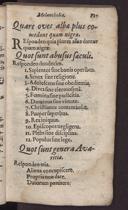 Adolescentia. 
Quare oves albæ plus comedant quam nigræ.
Respondeo quia plures albæ dantur
quam nigræ.
Quot sunt abusus sæculi.
Respondeo duodecim.
1. Sapiens sine bonis operibus.
2. Senex sine religione.
3. Adolescens sine obedientia.
4. Dives sine eleemosyna.
5. Fœmina sine pudicitia.
6. Dominus sine virtute.
7. Christianus contentiosus.
8. Pauper superbus.
9. Rex iniquus.
10. Episcopus negligens.
11. Plebs sine disciplina.
12. Populus sine lege.
Quot sunt genera Avaritia.
Respondeo tria.
Aliena concupiscere.
Propria non dare.